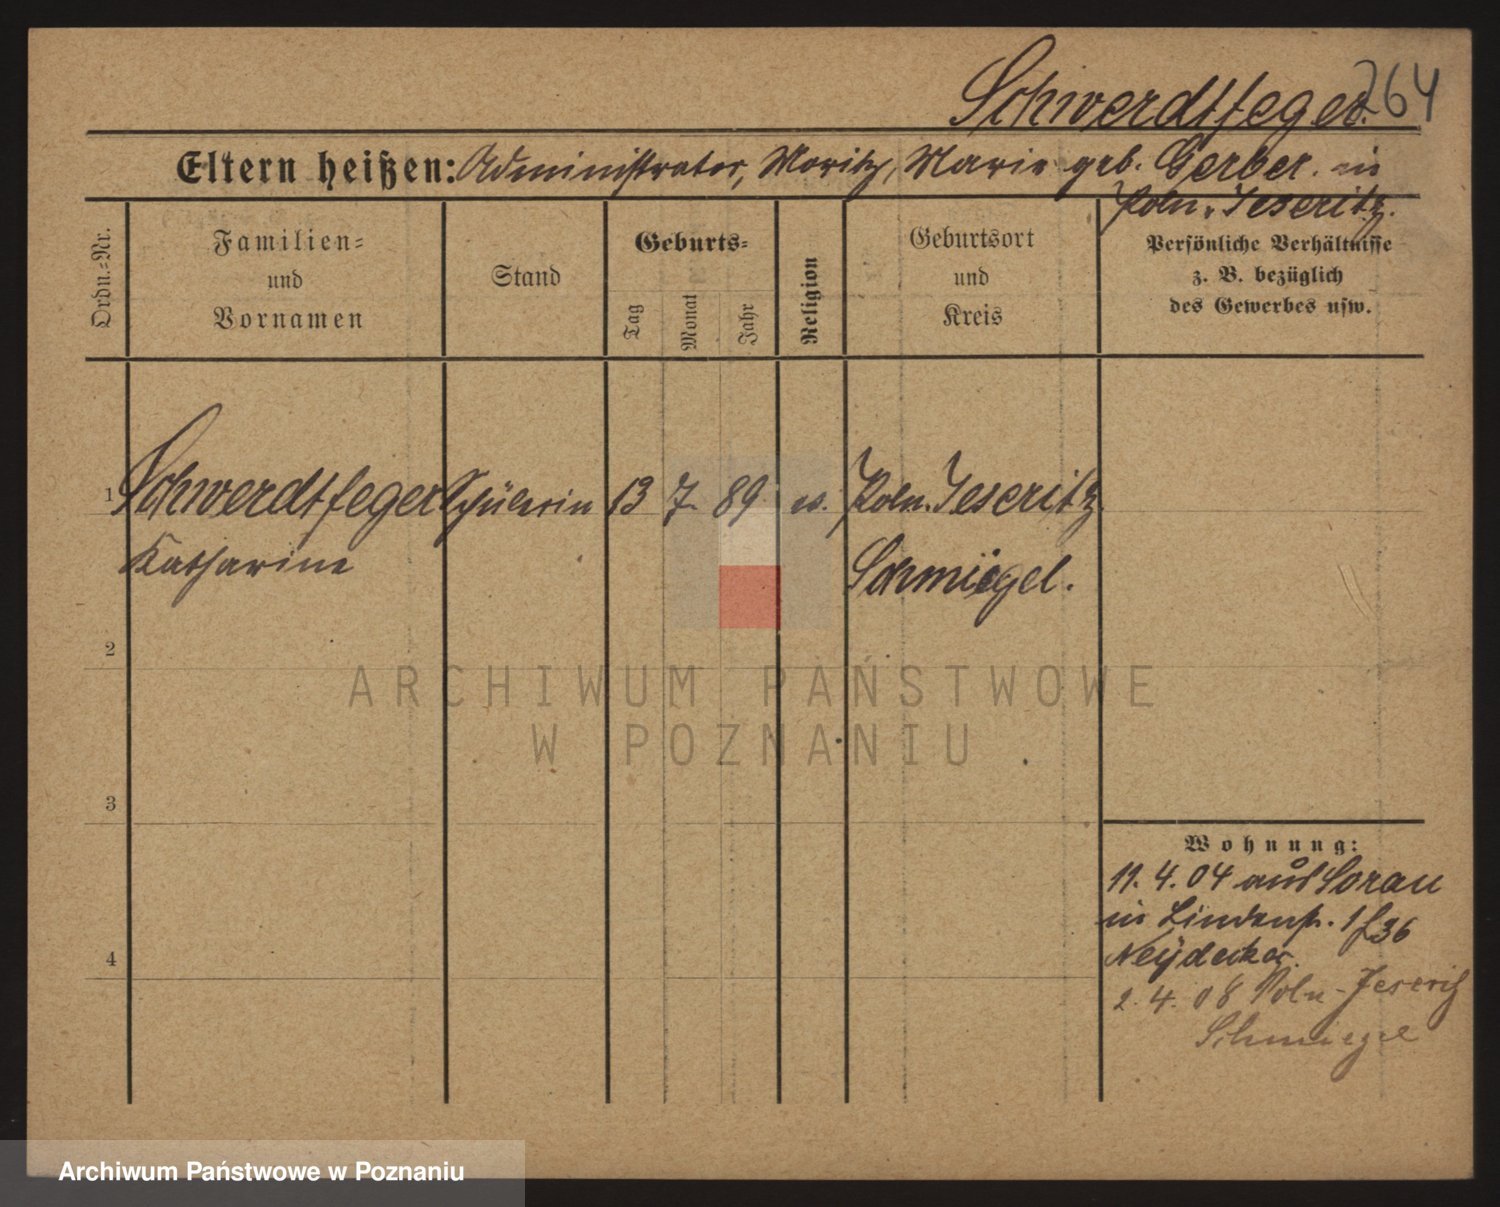 264
Schwerdtfeger.
Eltern heißen: Administrator, Moritz, Marie geb. Gerber. in
Poln. Jeseritz.
Ordn.-Nr.
Familien-
und
Vornamen
Stand
Geburts-
Tag
Monat
Jahr
Religion
Geburtsort
und
Kreis
Persönliche Verhältnisse
z. B. bezüglich
des Gewerbes usw.
1 Schwerdtfeger Schülerin 13 7. 89 ev. Poln. Jeseritz
Katharine Schmiegel.
2
3
4
Wohnung:
11. 4. 04 aus Sorau
in Lindenstr. 1 f 36
Neydecker.
2. 4. 08 Poln-Jeseritz
Schmiegel
ARCHIWUM PAŃSTWOWE
W POZNANIU
Archiwum Państwowe w Poznaniu